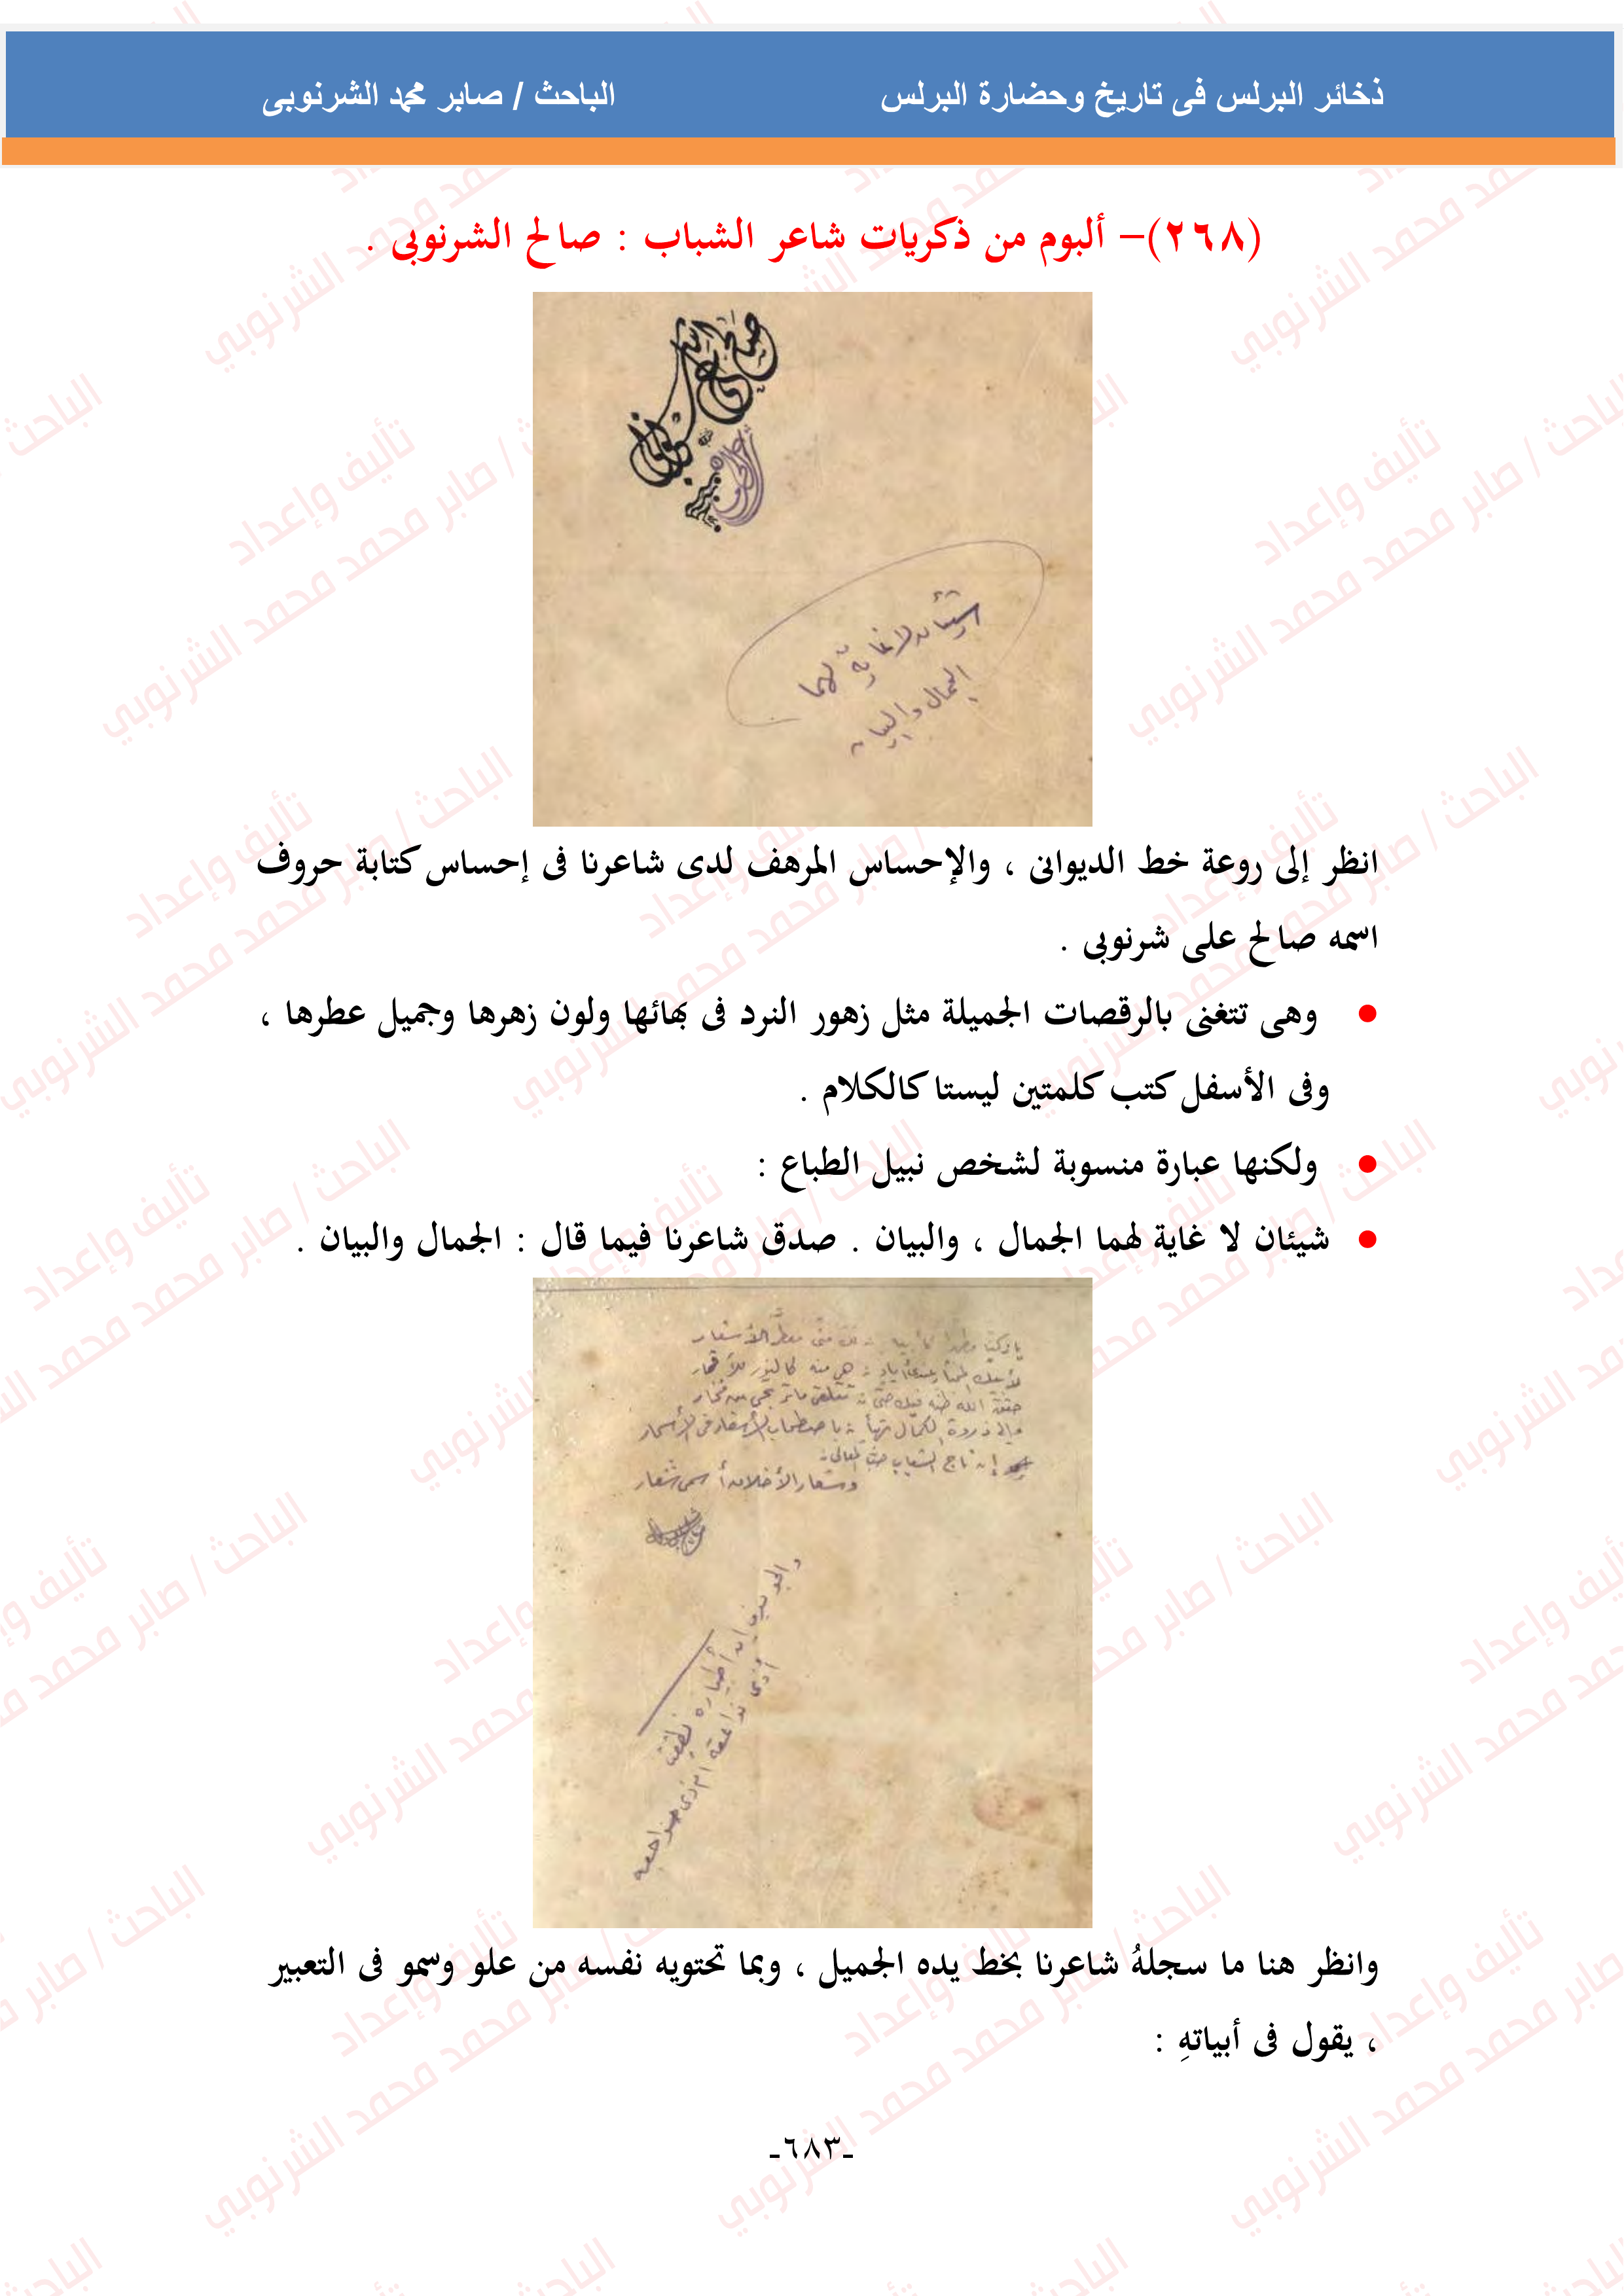 ذخائر البرلس فى تاريخ وحضارة البرلس الباحث / صابر محمد الشرنوبى
(٢٦٨)- ألبوم من ذكريات شاعر الشباب : صالح الشرنوبى .
شيئان لا غاية لهما
الجمال والبيان
انظر إلى روعة خط الديوانى ، والإحساس المرهف لدى شاعرنا فى إحساس كتابة حروف
اسمه صالح على شرنوبى .
وهى تتغنى بالرقصات الجميلة مثل زهور النرد فى بهائها ولون زهرها وجميل عطرها ،
وفى الأسفل كتب كلمتين ليستا كالكلام .
ولكنها عبارة منسوبة لشخص نبيل الطباع :
شيئان لا غاية لهما الجمال ، والبيان . صدق شاعرنا فيما قال : الجمال والبيان .
حقق الله ظنه فيك حتى
إن تاج الشباب حب المعالى
وشعار الأخلاق أسمى شعار
وانظر هنا ما سجلهُ شاعرنا بخط يده الجميل ، وبما تحتويه نفسه من علو وسمو فى التعبير
، يقول فى أبياتهِ :
-٦٨٣-
تأليف وإعداد
الباحث / صابر محمد محمد الشرنوبي